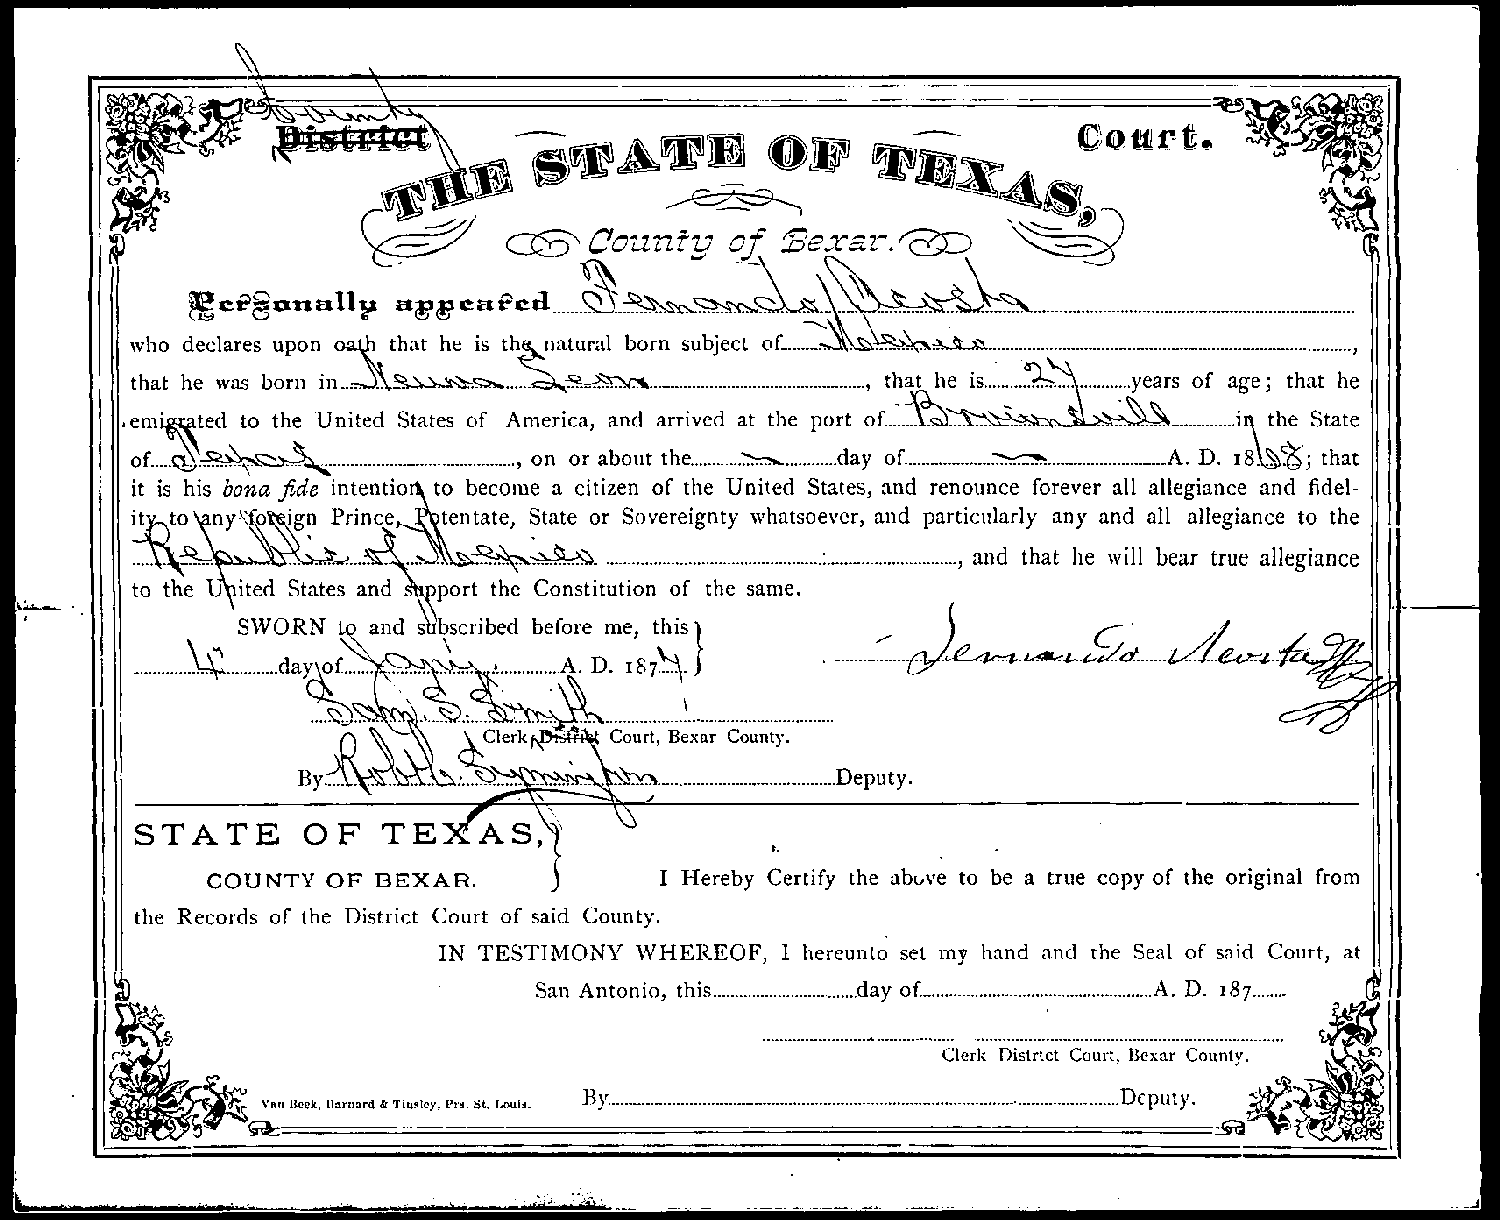 County
District Court.
THE STATE OF TEXAS,
County of Bexar.
Personally appeared Fernando Acosta
who declares upon oath that he is the natural born subject of Mexico,
that he was born in Neuva Leon, that he is 27 years of age; that he
emigrated to the United States of America, and arrived at the port of Brownsvill in the State
of Texas, on or about the — day of — A. D. 1868; that
it is his bona fide intention to become a citizen of the United States, and renounce forever all allegiance and fidel-
ity to any foreign Prince, Potentate, State or Sovereignty whatsoever, and particularly any and all allegiance to the
Republic of Mexico, and that he will bear true allegiance
to the United States and support the Constitution of the same.
SWORN to and subscribed before me, this
4" day of Jany. A. D. 187
Fernando Acosta
Sam. S. Smith
Clerk District Court, Bexar County.
By Robt. Symington Deputy.
STATE OF TEXAS,
COUNTY OF BEXAR.
I Hereby Certify the above to be a true copy of the original from
the Records of the District Court of said County.
IN TESTIMONY WHEREOF, I hereunto set my hand and the Seal of said Court, at
San Antonio, this day of A. D. 187
Clerk District Court, Bexar County.
Van Beek, Barnard & Tinsley, Prs. St. Louis.
By Deputy.